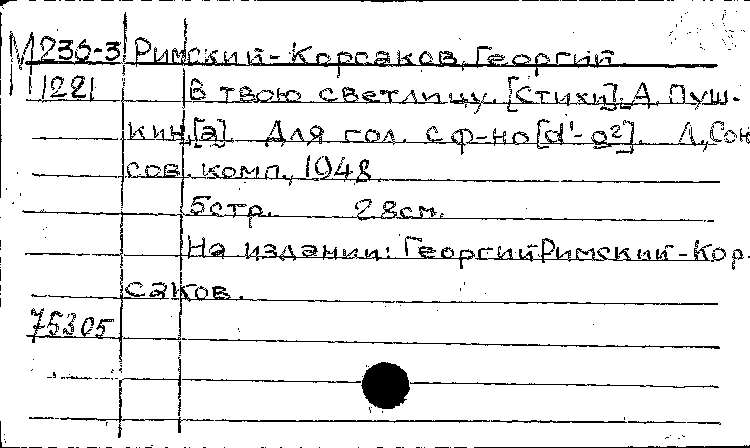 М 236-3 Римский-Корсаков, Георгий
1221 В твою светлицу. [Стихи] А. Пуш-
кин[а]. Для гол. с ф-но [d'-g²]. Л., Сою
сов. комп., 1948
5 стр. 28 см.
На издании: Георгий Римский-Кор-
саков.
75305